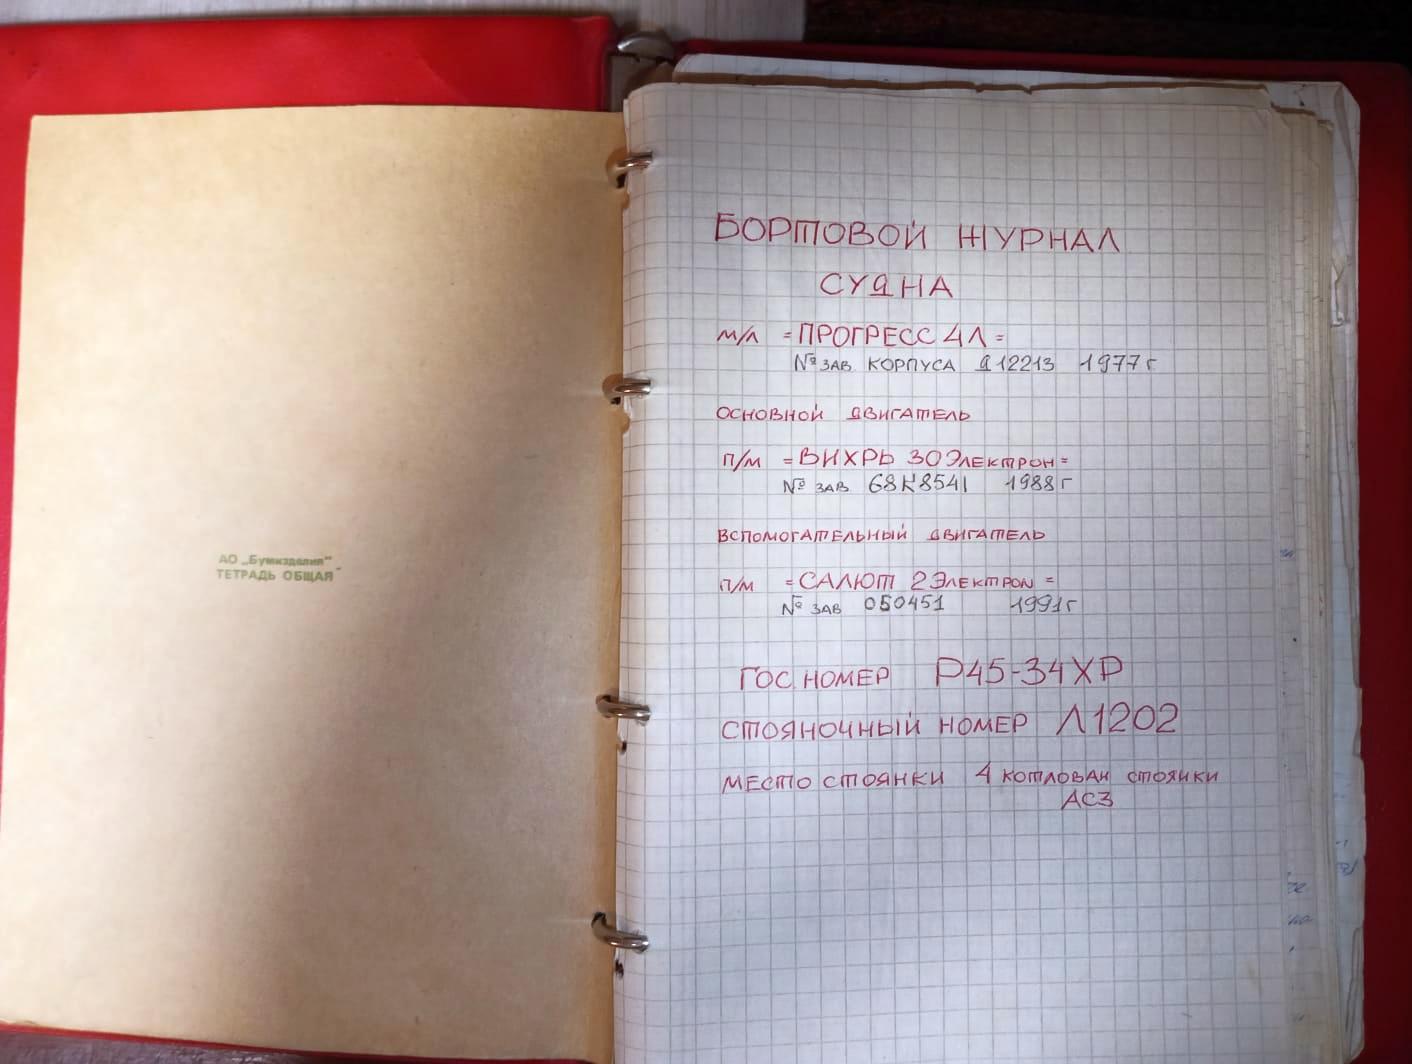 АО „Бумизделия"
ТЕТРАДЬ ОБЩАЯ
БОРТОВОЙ ЖУРНАЛ
СУДНА
М/Л =ПРОГРЕСС 4Л=
№ ЗАВ КОРПУСА Д12213 1977г
ОСНОВНОЙ ДВИГАТЕЛЬ
П/М =ВИХРЬ 30 ЭЛЕКТРОН=
№ ЗАВ 68К8541 1988г
ВСПОМОГАТЕЛЬНЫЙ ДВИГАТЕЛЬ
П/М =САЛЮТ 2 ЭЛЕКТРОН=
№ ЗАВ 050451 1991г
ГОС. НОМЕР Р45-34ХР
СТОЯНОЧНЫЙ НОМЕР Л1202
МЕСТО СТОЯНКИ 4 КОТЛОВАН СТОЯНКИ
АСЗ